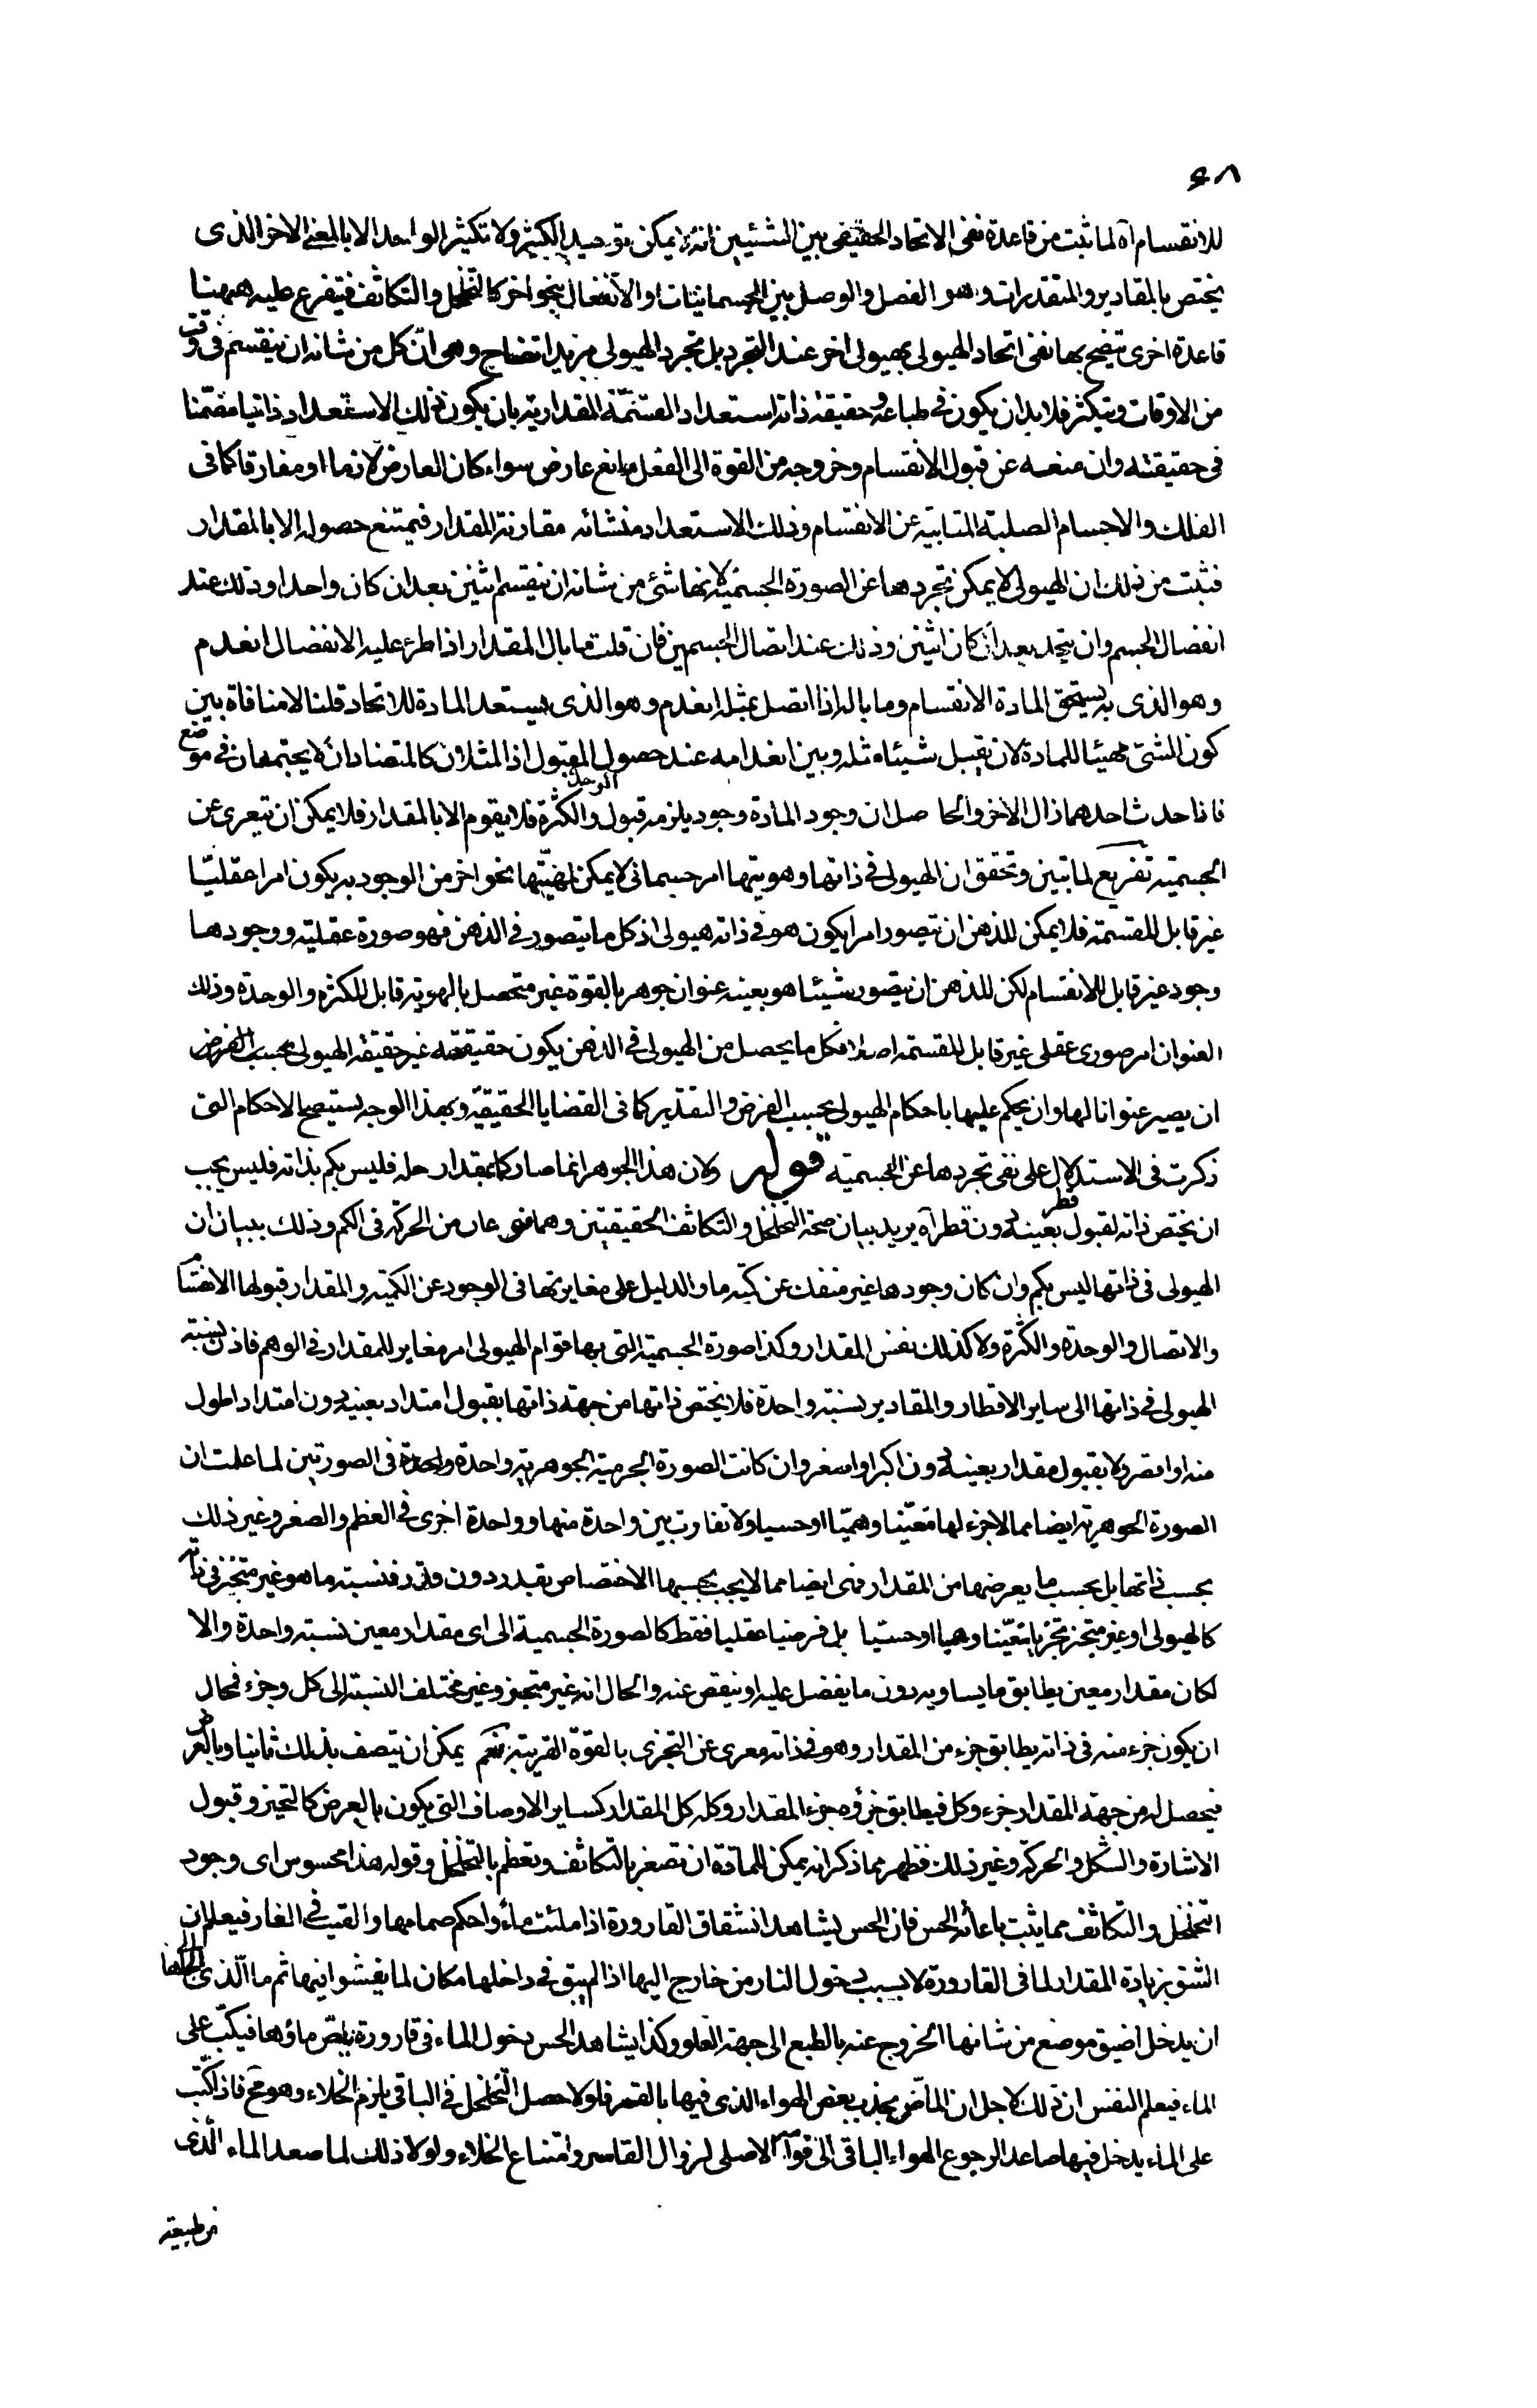 ٦٨
للانقسام آه لما ثبت من قاعدة نفى الاتحاد الحقيقى بين الشيئين انه لا يمكن توحيد الكثير ولا تكثير الواحد الا بالمعنى الاخر الذى
يختص بالمقادير والمتقدرات وهو الفصل والوصل بين الجسمانيات او الانفعال بنحو اخر كالتخلخل والتكاثف فيتفرع عليه ههنا
قاعدة اخرى يتضح بها نفى اتحاد الهيولى بهيولى اخر عند التجرد بل تجرد الهيولى مزيد اتضاح وهى ان كل من شانه ان ينقسم فى وقت
من الاوقات ويتكثر فلا بد ان يكون فى طباعه وحقيقة ذاته استعداد القسمة المقدارية بان يكون ذلك الاستعداد ذاتيا مضمنا
فى حقيقته وان منعه عن قبول الانقسام وخروجه من القوة الى الفعل مانع عارض سواء كان العارض لازما او مفارقا كما فى
الفلك والاجسام الصلبة المتابية عن الانقسام وذلك الاستعداد منشائه مقارنة المقدار فيمتنع حصوله الا بالمقدار
فثبت من ذلك ان الهيولى لا يمكن تجردها عن الصورة الجسمية لانها شئ من شانه ان ينقسم اثنين بعد ان كان واحدا وذلك عند
انفصال الجسم وان يتحد بعد ان كان اثنين وذلك عند اتصال الجسمين فان قلت ما بال المقدار اذا طرء عليه الانفصال انعدم
وهو الذى به يستحق المادة الانقسام وما باله اذا اتصل بمثله انعدم وهو الذى يستعد المادة للاتحاد قلنا لا منافاة بين
كون الشئ مهيئا للمادة لان يقبل شيئا مثله وبين انعدامه عند حصول المقبول اذ المثلان كالمتضادان لا يجتمعان فى موضع
فاذا حدث احدهما زال الاخر والحاصل ان وجود المادة وجود يلزمه قبول الوحدة والكثرة فلا يقوم الا بالمقدار فلا يمكن ان تتعرى عن
الجسمية تفريع لما تبين وتحقق ان الهيولى فى ذاتها وهويتها امر جسمانى لا يمكن لمهيتها نحو اخر من الوجود به يكون امرا عقليا
غير قابل للقسمة فلا يمكن للذهن ان يتصور امرا يكون هو فى ذاته هيولى اذ كل ما يتصور فى الذهن فهو صورة عقلية ووجودها
وجود غير قابل للانقسام لكن للذهن ان يتصور شيئا هو بعينه عنوان جوهر بالقوة غير متحصل بالهوية قابل للكثرة والوحدة وذلك
العنوان امر صورى عقلى غير قابل للقسمة اصلا فكل ما يحصل من الهيولى فى الذهن يكون حقيقته غير حقيقة الهيولى بحسب الفرض
ان يصير عنوانا لها وان يحكم عليها باحكام الهيولى بحسب الفرض والتقدير كما فى القضايا الحقيقية وبهذا الوجه يستصح الاحكام التى
ذكرت فى الاستدلال على نفى تجردها عن الجسمية قوله ولان هذا الجوهر انما صار كما بمقدار حله فليس بكم بذاته فليس يجب
ان يختص ذاته لقبول قطر بعينه دون قطر آه يريد بيان صحة التخلخل والتكاثف الحقيقيين وهما نوعان من الحركة فى الكم وذلك ببيان ان
الهيولى فى ذاتها ليس بكم وان كان وجودها غير منفك عن كمية ما والدليل على مغايرتها فى الوجود عن الكمية والمقدار قبولها الانقسام
والاتصال والوحدة والكثرة ولا كذلك نفس المقدار وكذا صورة الجسمية التى بها قوام الهيولى امر مغاير للمقدار فى الوهم فاذن نسبة
الهيولى فى ذاتها الى ساير الاقطار والمقادير نسبة واحدة فلا يختص ذاتها من جهة ذاتها بقبول امتداد بعينه دون امتداد اطول
منه او اقصر ولا بقبول مقدار بعينه دون اكبر او اصغر وان كانت الصورة الجرمية الجوهرية واحدة واحدة فى الصورتين لما علمت ان
الصورة الجوهرية ايضا مما لا جزء لها معينا وهميا او حسيا ولا تفاوت بين واحدة منها وواحدة اخرى فى العظم والصغر وغير ذلك
بحسب ذاتها بل بحسب ما يعرضها من المقدار فهى ايضا مما لا يجب بحسبها الاختصاص بقدر دون قدر فنسبة ما هو غير متجز فى ذاته
كالهيولى او غير متجز تجزيا متعينا وهميا او حسيا بل فرضيا عقليا فقط كالصورة الجسمية الى اى مقدار معين نسبة واحدة والا
لكان مقدار معين يطابق ما يساويه دون ما يفضل عليه او ينقص عنه والحال انه غير متجز وغير مختلف النسبة الى كل وجزء فمحال
ان يكون جزء منه فى ذاته يطابق جزء من المقدار وهو فى ذاته معرى عن التجزى بالقوة القريبة نعم يمكن ان يتصف بذلك ثانيا وبالعرض
فيحصل له من جهة المقدار جزء وكل فيطابق جزؤه جزء المقدار وكله كل المقدار كساير الاوصاف التى يكون بالعرض كالتحيز وقبول
الاشارة والشكل والحركة وغير ذلك فظهر مما ذكر انه يمكن للمادة ان تصغر بالتكاثف وتعظم بالتخلخل وقوله هذا محسوس اى وجود
التخلخل والتكاثف مما يثبت باعانة الحس فان الحس يشاهد انشقاق القارورة اذا ملئت ماء واحكم صمامها والقيت فى النار فيعلم ان
الشق بزيادة المقدار لما فى القارورة لا بسبب دخول النار من خارج اليها اذ لم يبق فى داخلها مكان لما يفشو فيها ثم ما الذى الجاها
ان يدخل اضيق موضع من شانها الخروج عنه بالطبع الى جهة العلو وكذا يشاهد الحس دخول الماء فى قارورة يمص ماؤها فيكب على
الماء فيعلم النفس ان ذلك لاجل ان الماص يجذب بعض الهواء الذى فيها بالقسر فلولا حصل التخلخل فى الباقى يلزم الخلاء وهو مح فاذا كب
على الماء يدخل فيها صاعدا لرجوع الهواء الباقى الى قوامه الاصلى لزوال القاسر وامتناع الخلاء ولولا ذلك لما صعد الماء الذى
من طبيعته